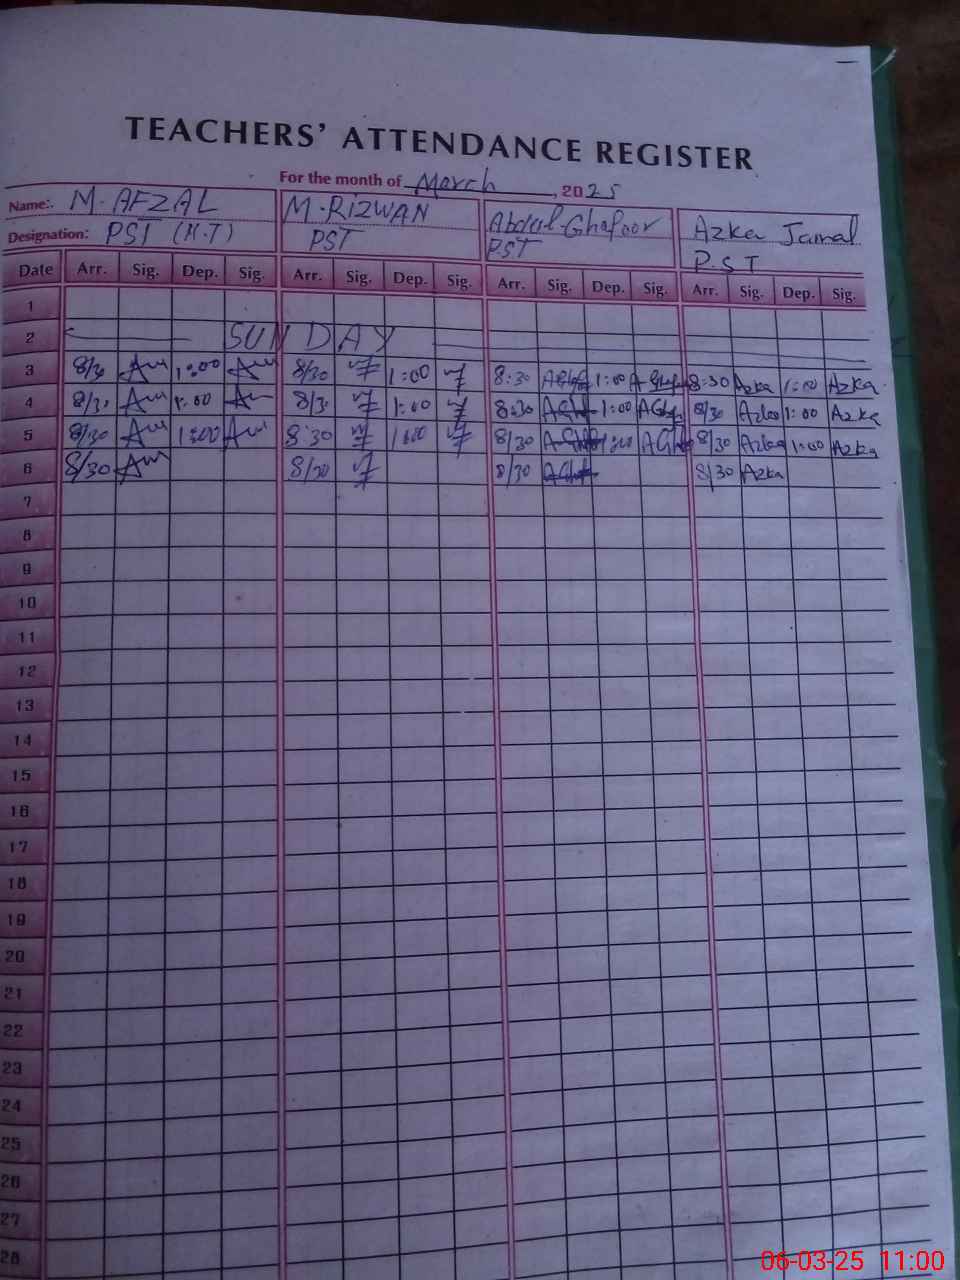 TEACHERS' ATTENDANCE REGISTER
For the month of March, 2025
Name: M. AFZAL M. RIZWAN Abdul Ghafoor Azka Jamal
Designation: PST (H.T) PST P.S.T P.S.T
Date Arr. Sig. Dep. Sig. Arr. Sig. Dep. Sig. Arr. Sig. Dep. Sig. Arr. Sig. Dep. Sig.
1
2 SUNDAY
3 8/30 1:00 8/30 1:00 8:30 1:00 8:30 Azka 1:00 Azka
4 8/30 1:00 8/30 1:00 8:30 1:00 8/30 Azka 1:00 Azka
5 8/30 1:00 8:30 1:00 8/30 1:00 8/30 Azka 1:00 Azka
6 8/30 8/30 8/30 8/30 Azka
7
8
9
10
11
12
13
14
15
16
17
18
19
20
21
22
23
24
25
26
27
28
06-03-25 11:00